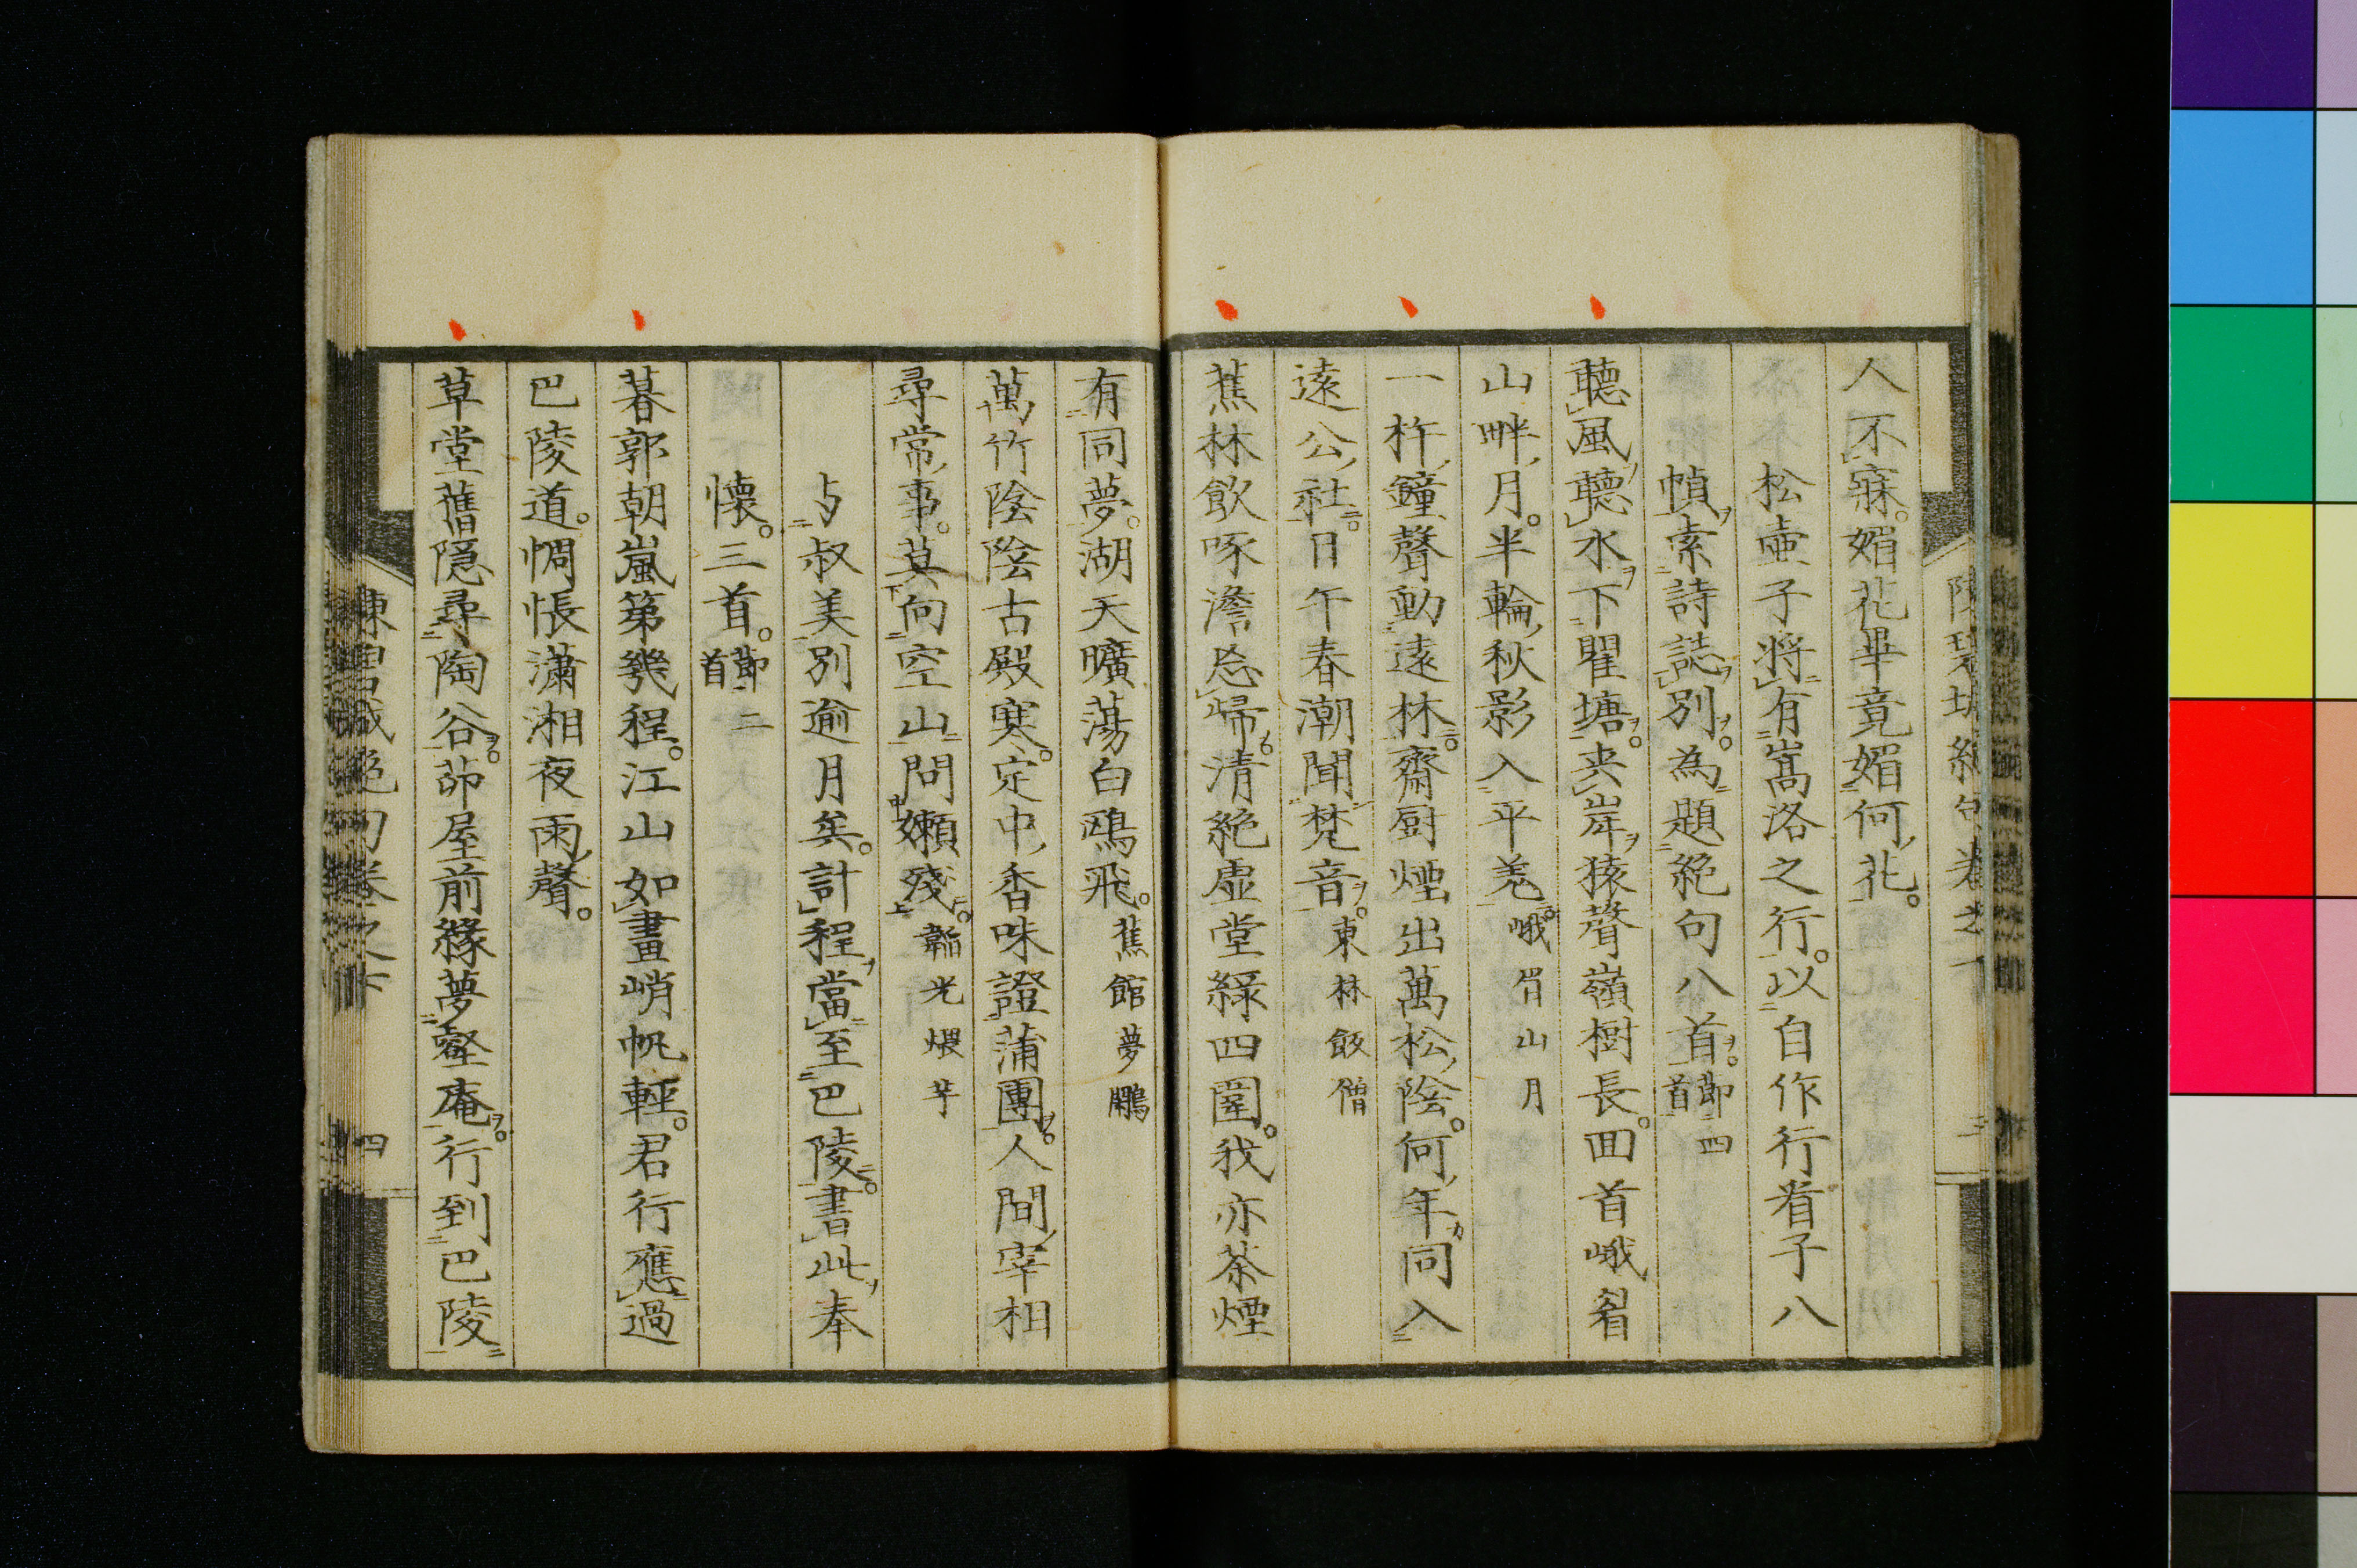 人不寐。媚花畢竟媚何花。
松壺子將有嵩洛之行。以自作行看子八
幀索詩誌別。為題絶句八首。節四首
聽風聽水下瞿塘。夾岸猿聲嶺樹長。回首峨眉
山畔月。半輪秋影入平羌。峨眉山月
一杵鐘聲動遠林。齋厨煙出萬松陰。何年同入
遠公社。日午春潮聞梵音。東林飯僧
蕉林飲啄澹忘歸。清絶虚堂緑四圍。我亦茶煙
有同夢。湖天曠蕩白鷗飛。蕉館夢鷳
萬竹陰陰古殿寒。定中香味證蒲團。人間宰相
尋常事。莫向空山問嬾殘。韜光煨芋
与叔美別逾月矣。計程當至巴陵。書此奉
懐。三首。節二首
暮郭朝嵐第幾程。江山如畫峭帆輕。君行應過
巴陵道。惆悵瀟湘夜雨聲。
草堂舊隠尋陶谷。茆屋前縁夢壑庵。行到巴陵
陳雲城絶句卷之下 四